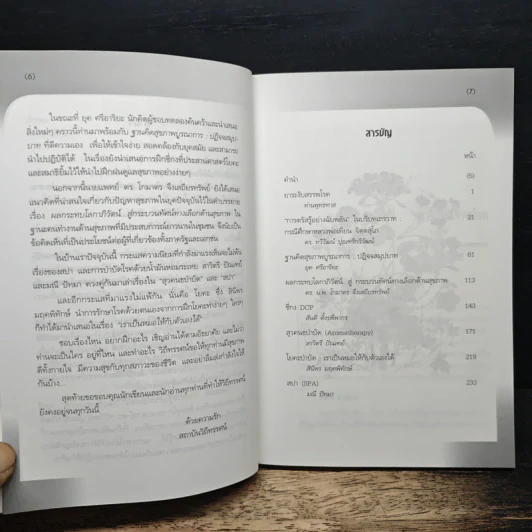 (6)
ในขณะที่ ยุค ศรีอาริยะ นักคิดผู้ชอบทดลองค้นคว้าและนำเสนอ
สิ่งใหม่ๆ คราวนี้ท่านมาพร้อมกับ ฐานคิดสุขภาพบูรณาการ : ปฏิจจสมุป-
บาท ที่ตีความเอง เพื่อให้เข้าใจง่าย สอดคล้องกับยุคสมัย และสามารถ
นำไปปฏิบัติได้ ในเรื่องยังนำเสนอการฝึกชี่กงที่ประสานศาสตร์โยคะ
และสมาธิยิ้มไว้ให้นำไปฝึกฝนดูแลสุขภาพอย่างง่ายๆ
นอกจากนี้นายแพทย์ ดร. โกมาตร จึงเสถียรทรัพย์ ยังได้เสนอ
แนวคิดที่น่าสนใจเกี่ยวกับปัญหาสุขภาพในยุคปัจจุบันไว้ในคำบรรยาย
เรื่อง ผลกระทบโลกาภิวัตน์..สู่กระบวนทัศน์ทางเลือกด้านสุขภาพ ใน
ฐานะคนทำงานด้านสุขภาพที่มีประสบการณ์ยาวนานในชุมชน จึงนับเป็น
ข้อคิดเห็นที่เป็นประโยชน์ต่อผู้ที่เกี่ยวข้องทั้งภาครัฐและเอกชน
ในบ้านเราปัจจุบันนี้ กระแสความนิยมที่กำลังมาแรงเห็นจะไม่พ้น
เรื่องของสปา และการบำบัดโรคด้วยน้ำมันหอมระเหย สาวิตรี ปิณแพทย์
และมณี ปัทมา ควงคู่กันมาเล่าเรื่องใน "สุวคนธบำบัด" และ "สปา"
และอีกกระแสที่มาแรงไม่แพ้กัน นั่นคือ โยคะ ซึ่ง สินิตร
มฤคพิทักษ์ นำการรักษาโรคด้วยตนเองจากการฝึกโยคะท่าง่ายๆ ใครๆ
ก็ทำได้มานำเสนอในเรื่อง "เราเป็นหมอให้กับตัวเองได้"
ชอบเรื่องไหน อยากฝึกอะไร เชิญอ่านได้ตามอัธยาศัย และไม่ว่า
ท่านจะเป็นใคร อยู่ที่ไหน และทำอะไร วิถีทรรศน์ขอให้ทุกท่านมีสุขภาพ
ดีทั้งกายใจ มีความสุขกับทุกสภาวะของชีวิต และอย่าลืมส่งกำลังใจให้
กันบ้าง...
สุดท้ายขอขอบคุณนักเขียนและนักอ่านทุกท่านที่ทำให้วิถีทรรศน์
ยังคงอยู่จนทุกวันนี้
ด้วยความรัก
สถาบันวิถีทรรศน์
(7)
สารบัญ
หน้า
คำนำ (5)
ยาระงับสรรพโรค 1
ท่านพุทธทาส
"การตรัสรู้อย่างฉับพลัน" ในบริบทเถรวาท 21
กรณีศึกษาหลวงพ่อเทียน จิตฺตสุโภ
ดร. ทวีวัฒน์ ปุณฑริกวิวัฒน์
ฐานคิดสุขภาพบูรณาการ : ปฏิจจสมุปบาท 61
ยุค ศรีอาริยะ
ผลกระทบโลกาภิวัตน์ สู่ กระบวนทัศน์ทางเลือกด้านสุขภาพ 113
ดร. น.พ. โกมาตร จึงเสถียรทรัพย์
ชี่กง DCP 143
สันติ
สุวคนธบำบัด (Aromatherapy) 175
สาวิตรี ปิณแพทย์
โยคะบำบัด : เราเป็นหมอให้กับตัวเองได้ 219
สินิตร มฤคพิทักษ์
สปา (SPA) 233
มณี ปัทมา